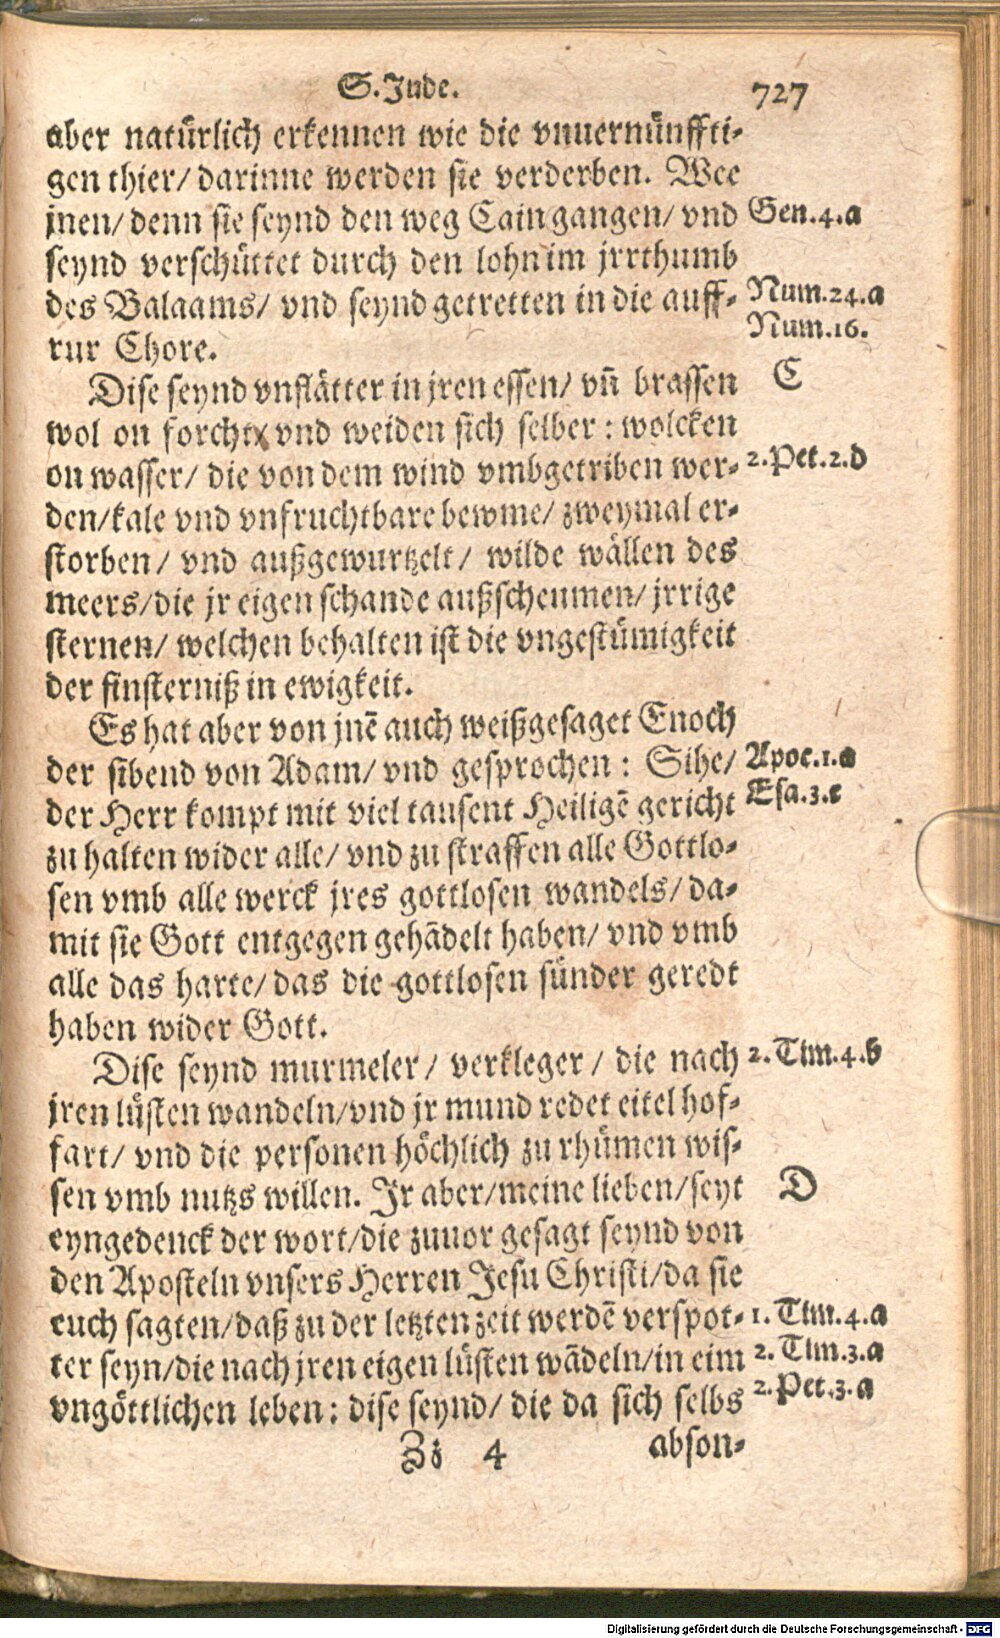 S. Jude. 727
aber natürlich erkennen wie die vnuernünffti-
gen thier/ darinne werden sie verderben. Wee
jnen/ denn sie seynd den weg Cain gangen/ vnd Gen.4.a
seynd verschüttet durch den lohn im jrrthumb
des Balaams/ vnd seynd getretten in die auff- Num.24.a
rur Chore. Num.16.
Dise seynd vnflätter in jren essen/ vn̄ brassen C
wol on forcht/ vnd weiden sich selber: wolcken
on wasser/ die von dem wind vmbgetriben wer- 2.Pet.2.d
den/kale vnd vnfruchtbare bewme/ zweymal er-
storben/ vnd außgewurtzelt/ wilde wällen des
meers/die jr eigen schande außscheumen/ jrrige
sternen/ welchen behalten ist die vngestümigkeit
der finsterniß in ewigkeit.
Es hat aber von jnē auch weißgesaget Enoch
der sibend von Adam/ vnd gesprochen: Sihe/ Apoc.1.a
der Herr kompt mit viel tausent Heiligē gericht Esa.3.c
zu halten wider alle/ vnd zu straffen alle Gottlo-
sen vmb alle werck jres gottlosen wandels/ da-
mit sie Gott entgegen gehādelt haben/ vnd vmb
alle das harte/ das die gottlosen sünder geredt
haben wider Gott.
Dise seynd murmeler/ verkleger/ die nach 2.Tim.4.b
jren lüsten wandeln/vnd jr mund redet eitel hof-
fart/ vnd die personen höchlich zu rhümen wis-
sen vmb nutzs willen. Jr aber/meine lieben/seyt D
eyngedenck der wort/die zuuor gesagt seynd von
den Aposteln vnsers Herren Jesu Christi/da sie
euch sagten/daß zu der letzten zeit werdē verspot- 1.Tim.4.a
ter seyn/die nach jren eigen lüsten wādeln/in eim 2.Tim.3.a
vngöttlichen leben: dise seynd/ die da sich selbs 2.Pet.3.a
Zz 4 abson-
Digitalisierung gefördert durch die Deutsche Forschungsgemeinschaft - DFG